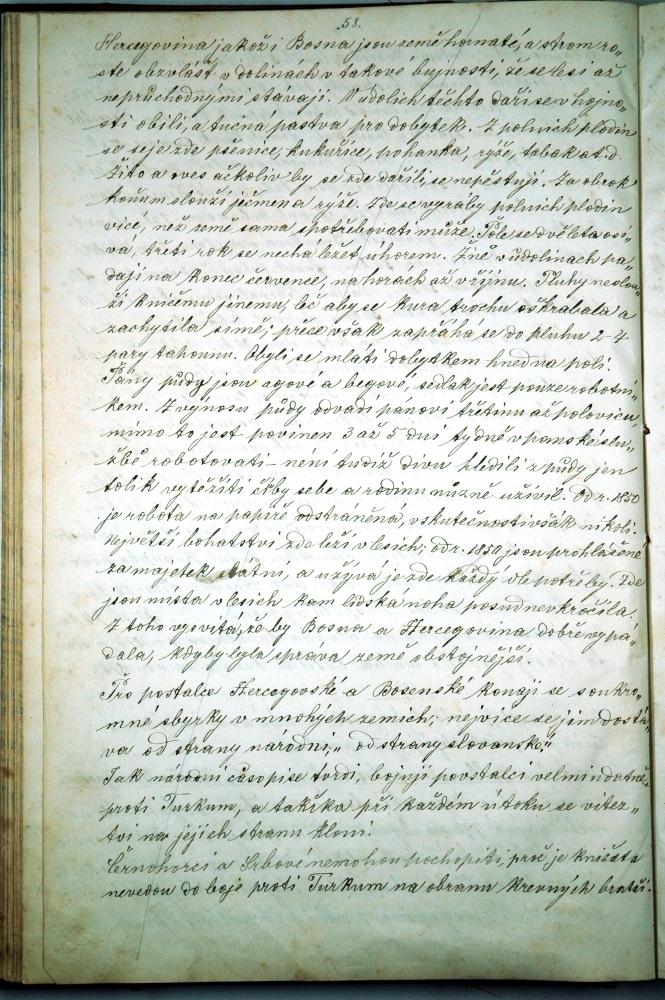 58.
Hercegovina jakož i Bosna jsou země hornaté, a strom ro„
ste obzvlášť v dolinách v takové bujnosti, že se lesi až
neprůchodnými stávají. V údolích těchto daří se v hojno„
sti obilí, a tučná pastva pro dobytek. Z polních plodin
se seje zde pšenice, kukuřice, pohanka, rýže, tabák at.d.
Žito a oves ačkoliv by se zde dařili, se nepěstují. Za obrok
koňum slouží ječmen a rýže. Zde se vyráby polních plodin
více, než země sama spotřebovati může. Pole se dvě léta osí„
vá, třetí rok se nechá ležet úhorem. Žně v údolinách pa„
dají na konec července, na horách až v říjnu. Pluhy neslou„
ží k ničemu jinému, leč aby se kura trochu oškrabala a
zachytila símě; přece však zapřahá se do pluhu 2-4
pary tahounu. Obyli se mláti dobytkem hned na poli.
Pány půdy jsou agové a begové, sedlak jest pouze robotní„
kem. Z výnosu půdy odvadí pánovi třetinu až polovicu,
mimo to jest povinen 3 až 5 dní tydně v panské slu„
žbě robotovati – není tudíž divu hledíli z pudy jen
tolik vytěžiti čiby sebe a rodinu nuzně uživil. Od r. 1850
je robota na papiře odstráněná, v skutečnosti však nikoli.
Největší bohatství zde leží v lesích; od r. 1850 jsou prohlášené
za majetek státní, a užívá je zde každý dle potřeby. Zde
jsou místa v lesích kam lidská noha posud nevkročila.
Z toho vysvítá, že by Bosna a Hercegovina dobře vypá„
dala, kdyby byla správa země obstojnější.
Pro postalce Hercegovské a Bosenské konají se soukro„
mné sbyrky v mnohých zemích; nejvíce se jim dostá„
va od strany národní, „od strany slovanské."
Jak národní časopise tvrdí, bojují povstalci velmi udatně
proti Turkum, a takřka při každém útoku se vítez„
tví na jejich stranu kloní.
Černohorci a Srbové nemohou pochopiti, proč je knížata
nevedou do boje proti Turkum na obranu krevných bratří.